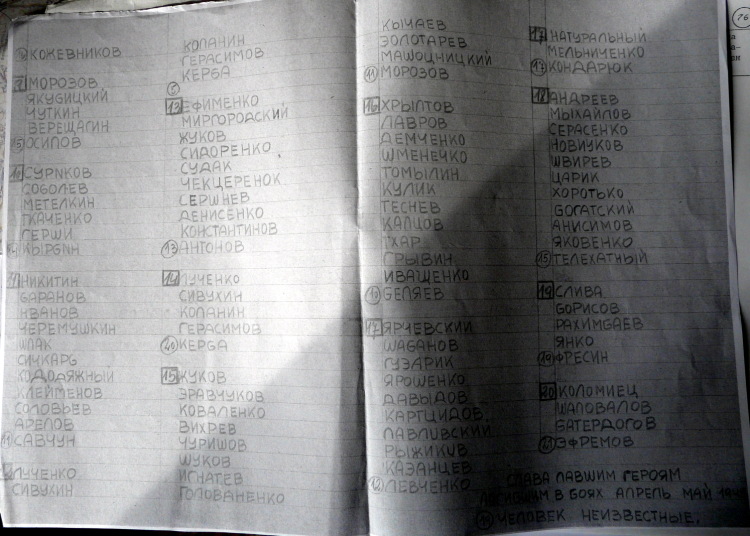 КОЖЕВНИКОВ
МОРОЗОВ
ЯКУБИЦКИЙ
ЧУТКИН
ВЕРЕЩАГИН
ОСИПОВ
СОБОЛЕВ
МЕТЕЛКИН
ТКАЧЕНКО
ГЕРШИ
НИКИТИН
БАРАНОВ
ИВАНОВ
ЧЕРЕМУШКИН
ШПАК
КЛЕЙМЕНОВ
СОЛОВЬЕВ
АРЕПОВ
САВЧУН
ЛУЧЕНКО
СИВУХИН
КОПАНИН
ГЕРАСИМОВ
КЕРБА
13 ЕФИМЕНКО
МИРГОРОДСКИЙ
ЖУКОВ
СИДОРЕНКО
СУДАК
ЧЕКЦЕРЕНОК
СЕРШНЕВ
ДЕНИСЕНКО
КОНСТАНТИНОВ
13 АНТОНОВ
14 ЛУЧЕНКО
СИВУХИН
КОПАНИН
ГЕРАСИМОВ
КЕРБА
15 ЖУКОВ
ЗРАВЧУКОВ
КОВАЛЕНКО
ВИХРЕВ
ЧУРИШОВ
ШУКОВ
ИГНАТЕВ
ГОЛОВАНЕНКО
КЫЧАЕВ
ЗОЛОТАРЕВ
МАШОЦНИЦКИЙ
11 МОРОЗОВ
16 ХРЫПТОВ
ЛАВРОВ
ДЕМЧЕНКО
ШМЕНЕЧКО
ТОМЫЛИН
КУЛИК
ТЕСНЕВ
КАПЦОВ
ТХАР
ГРЫВИН
ИВАЩЕНКО
БЕЛЯЕВ
17 ЯРЧЕВСКИЙ
ШАБАНОВ
ГУЗАРИК
ЯРОШЕНКО
ДАВЫДОВ
КАРГЦИДОВ
ПАВЛИВСКИЙ
РЫЖИКОВ
КАЗАНЦЕВ
12 ЛЕВЧЕНКО
17 НАТУРАЛЬНЫЙ
МЕЛЬНИЧЕНКО
КОНДАРЮК
18 АНДРЕЕВ
МЫХАЙЛОВ
СЕРАСЕНКО
НОВИУКОВ
ШВИРЕВ
ЦАРИК
ХОРОТЬКО
БОГАТСКИЙ
АНИСИМОВ
ЯКОВЕНКО
15 ТЕЛЕХАТНЫЙ
19 СЛИВА
БОРИСОВ
РАХИМБАЕВ
ЯНКО
19 ФРЕСИН
20 КОЛОМИЕЦ
ШАПОВАЛОВ
БАТЕРДОГОВ
ЭФРЕМОВ
СЛАВА ПАВШИМ ГЕРОЯМ
ПОГИБШИМ В БОЯХ АПРЕЛЬ МАЙ
ЧЕЛОВЕК НЕИЗВЕСТНЫЕ.
76